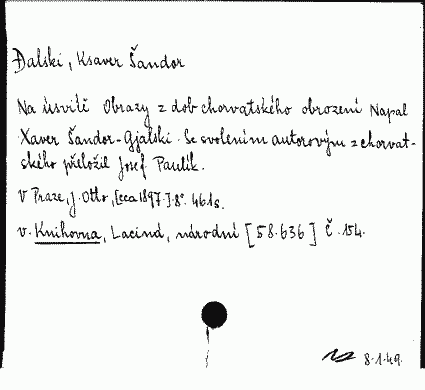 Đalski, Ksaver Šandor
Na úsvitě Obrazy z dob chorvatského obrození Napal
Xaver Šandor-Gjalski. Se svolením autorovým z chorvat-
ského přeložil Josef Paulík.
V Praze, J. Otto, [cca 1897.] 8°. 461s.
v. Knihovna, Laciná, národní [58.636] Č. 154.
8.1.49.